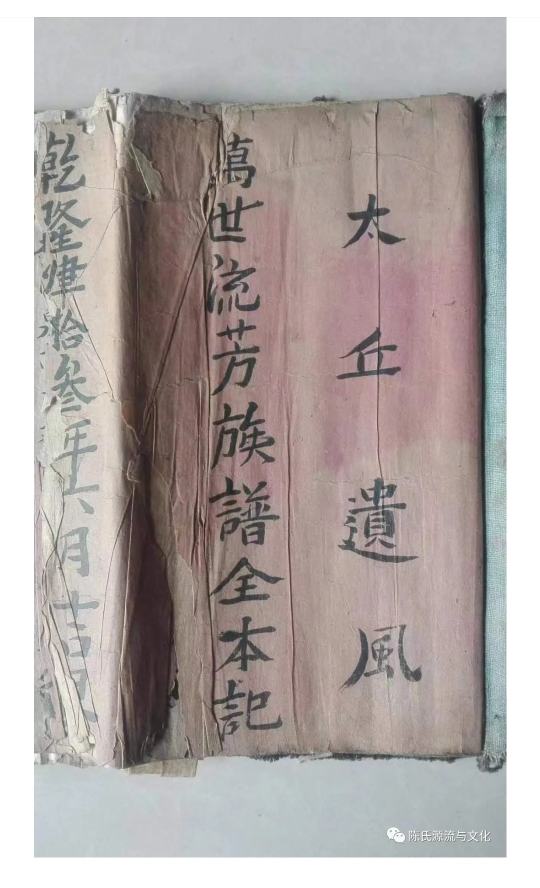 太丘遺風
萬世流芳族譜全本記
乾隆肆拾叁年六月吉
陈氏源流与文化